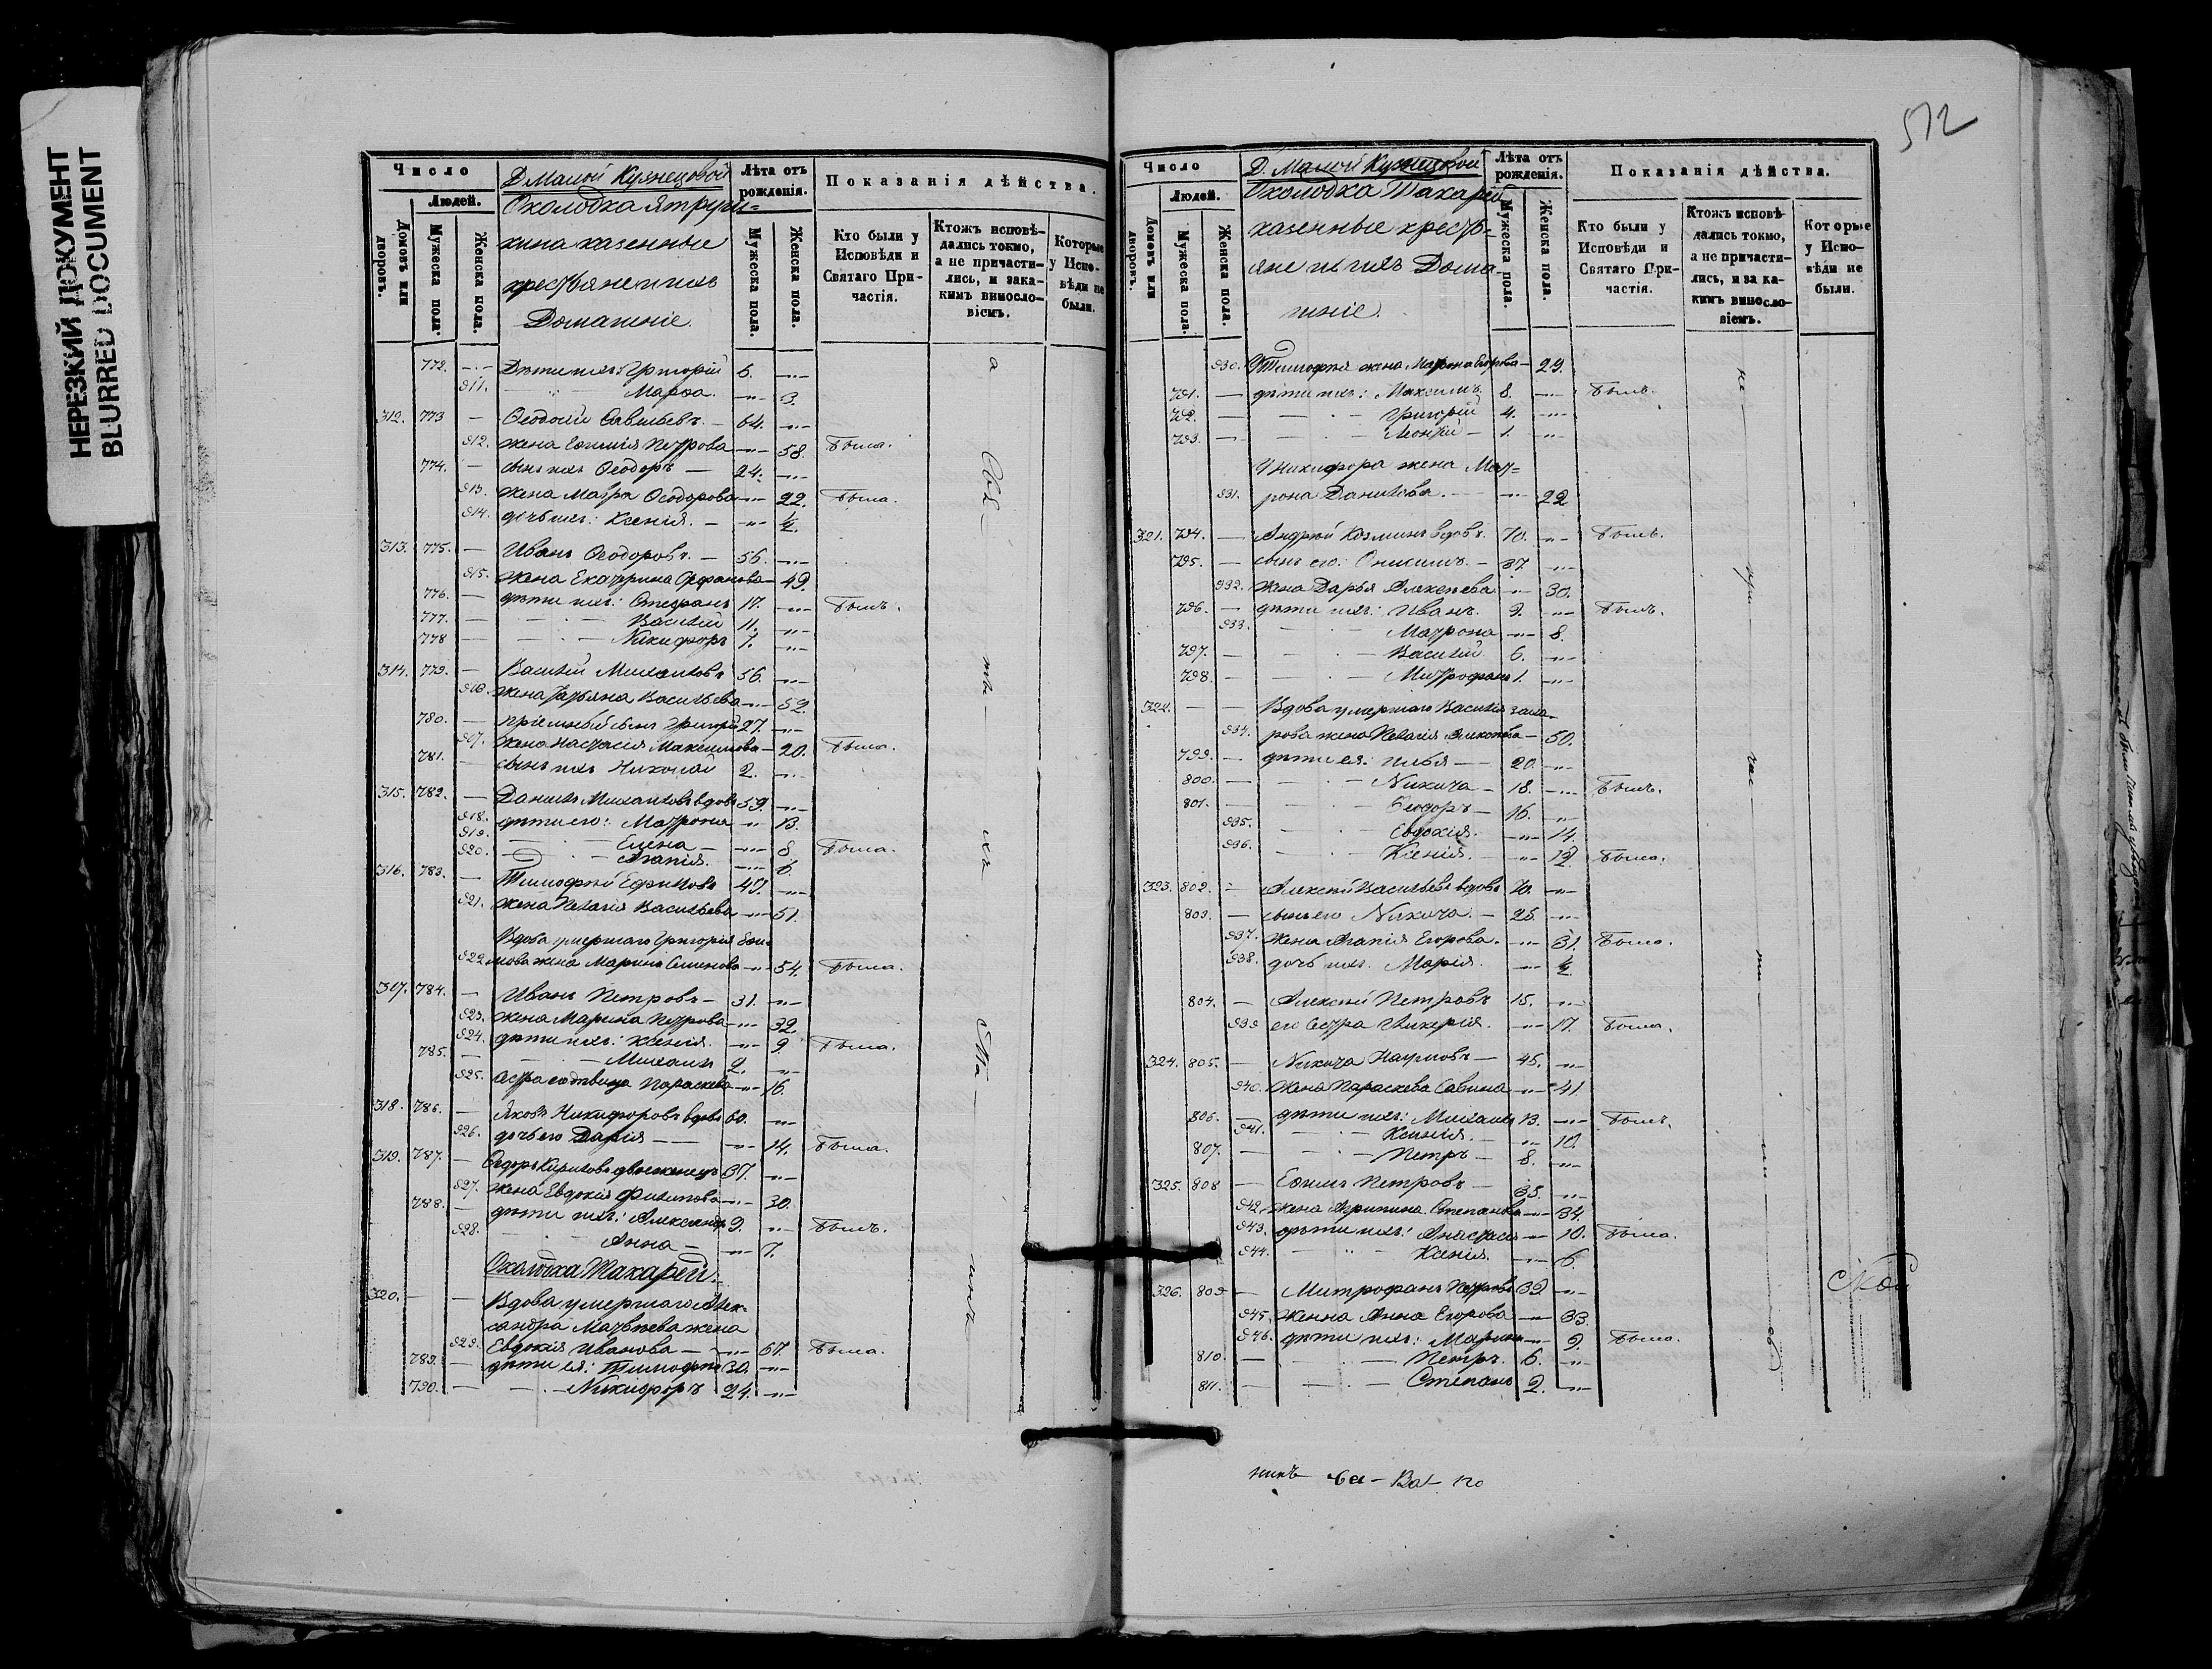 НЕРЕЗКИЙ ДОКУМЕНТ
BLURRED DOCUMENT
Число
Людей.
Домовъ или дворовъ.
Мужеска пола.
Женска пола.
Д Малой Кузнецовой
Околодка
казенные
крестьяне и ихъ
Домашніе.
Лѣта отъ рожденія.
Мужеска пола.
Женска пола.
Показанія дѣйства.
Кто были у Исповѣди и Святаго При-частія.
Ктожъ исповѣ-дались токмо, а не причасти-лись, и зака-кимъ винослo-віемъ.
Которые у Испо-вѣди не были.
772. — Дѣти ихъ: Григорій 6. —
911. Марфа. — 3.
312. 773 — Ѳеодосій Савельевъ. — 64. —
912. жена Евфимія Петрова — 58. Была.
774. — сынъ ихъ Ѳеодоръ — 24. —
913. жена Мавра Ѳеодорова — 22. Была.
914. дочь ихъ: Ксенія. — ½.
313. 775. — Иванъ Ѳеодоровъ. — 56. —
915. жена Екатерина — 49.
776. — дѣти ихъ: Стефанъ 17. — Былъ.
777. — Василій 11. —
778 — Никифоръ 7. —
314. 779. — Василій Михаиловъ 56. —
916. жена Татьяна Васильева — 52.
780. — пріемный сынъ Григорій 27. —
917. жена Настасія Максимова — 20. Была.
781. — сынъ ихъ Николай 2. —
315. 782. — Данилъ Михаиловъ вдовъ 59. —
918. дѣти его: Матрона — 13.
919. Елена — 8 Была.
920. Агапія. — 6.
316. 783. — Тимофей 47. —
921. жена Пелагія Васильева — 51.
Вдова умершаго Григорія
922 жена Марина Семенова — 54. Была.
317. 784. — Иванъ Петровъ — 31. —
923. жена Марина Петрова — 32.
924. дѣти ихъ: Ксенія. — 9. Была.
785. — Михаилъ 2. —
925. Сестра ево дѣвица Параскева — 16.
318. 786. — Яковъ Никифоровъ вдовъ 60. —
926. дочь его Дарія — — 14. Была.
319. 787. — Ѳедоръ Кириловъ двоеженецъ 37. —
927. жена Евдокія Филипова — 30.
788. — дѣти ихъ: Александръ 9. — Былъ.
928. Анна — — 7.
Околодка Токарей.
320. — — Вдова умершаго Алек-
сандра Матвѣева жена
929. Евдокія Иванова — — 67. Была.
789. — дѣти ея: Тимофей 30. —
790. — Никифоръ 24. —
512
Число
Людей.
Домовъ или дворовъ.
Мужеска пола.
Женска пола.
Д. Малой Кузнецовой
Околодка Токарей
казенные кресть-
яне и ихъ Дома
шніе.
Лѣта отъ рожденія.
Мужеска пола.
Женска пола.
Показанія дѣйства.
Кто были у Исповѣди и Святаго При-частія.
Ктожъ исповѣ-дались токмо, а не причасти-лись, и за ка-кимъ винослo-віемъ.
Которые у Испо-вѣди не были.
930. Тимофея жена Матрона Егорова — 29.
791. — дѣти ихъ: Максимъ 8. — Былъ.
792. — Григорій 4. —
793. — Леонтій — 1. —
У Никифора жена Мат-
931. рона Данилова. — 22
321. 794. — Андрей Козминъ вдовъ. 70. — Былъ.
795. — сынъ его: Онисимъ. — 37 —
932. жена Дарья Алексѣева — 30.
796. — дѣти ихъ: Иванъ. 9. — Былъ.
933. Матрона — 8.
797. — Василій. 6. —
798. — Митрофанъ 1. —
322. — — Вдова умершаго Василія Заха-
934. рова жена Пелагія — 50.
799. — дѣти ея: Илья — 20. —
800. — Никита — 18. — Былъ.
801. — Ѳеодоръ — 16. —
935. Евдокія. — 14.
936. Ксенія. — 12. Была.
323. 802. — Алексѣй Васильевъ вдовъ 70. —
803. — сынъ его Никита. — 25. —
937. жена Агапія Егорова. — 31. Была.
938. дочь ихъ. Марія. — ½.
804. — Алексѣй Петровъ 15. —
939 его Сестра Гликерія. — 17. Была.
324. 805. — Никита Наумовъ — 45. —
940. жена Параскева Савина — 41
806. — дѣти ихъ: Михаилъ 13. — Былъ.
941. Ксенія. — 10.
807. — Петръ — 8. —
325. 808 — Ефимъ Петровъ — 35. —
942. жена Агрипина Степанова — 34.
943. дѣти ихъ: Анастасія — 10. Была.
944. Ксенія. — 6.
326. 809 — Митрофанъ Петровъ 32 —
945. Жена Анна Егорова — 33.
946. дѣти ихъ: Марина — 9. Была.
810. — Петръ. 6. —
811. — Степанъ 2. —